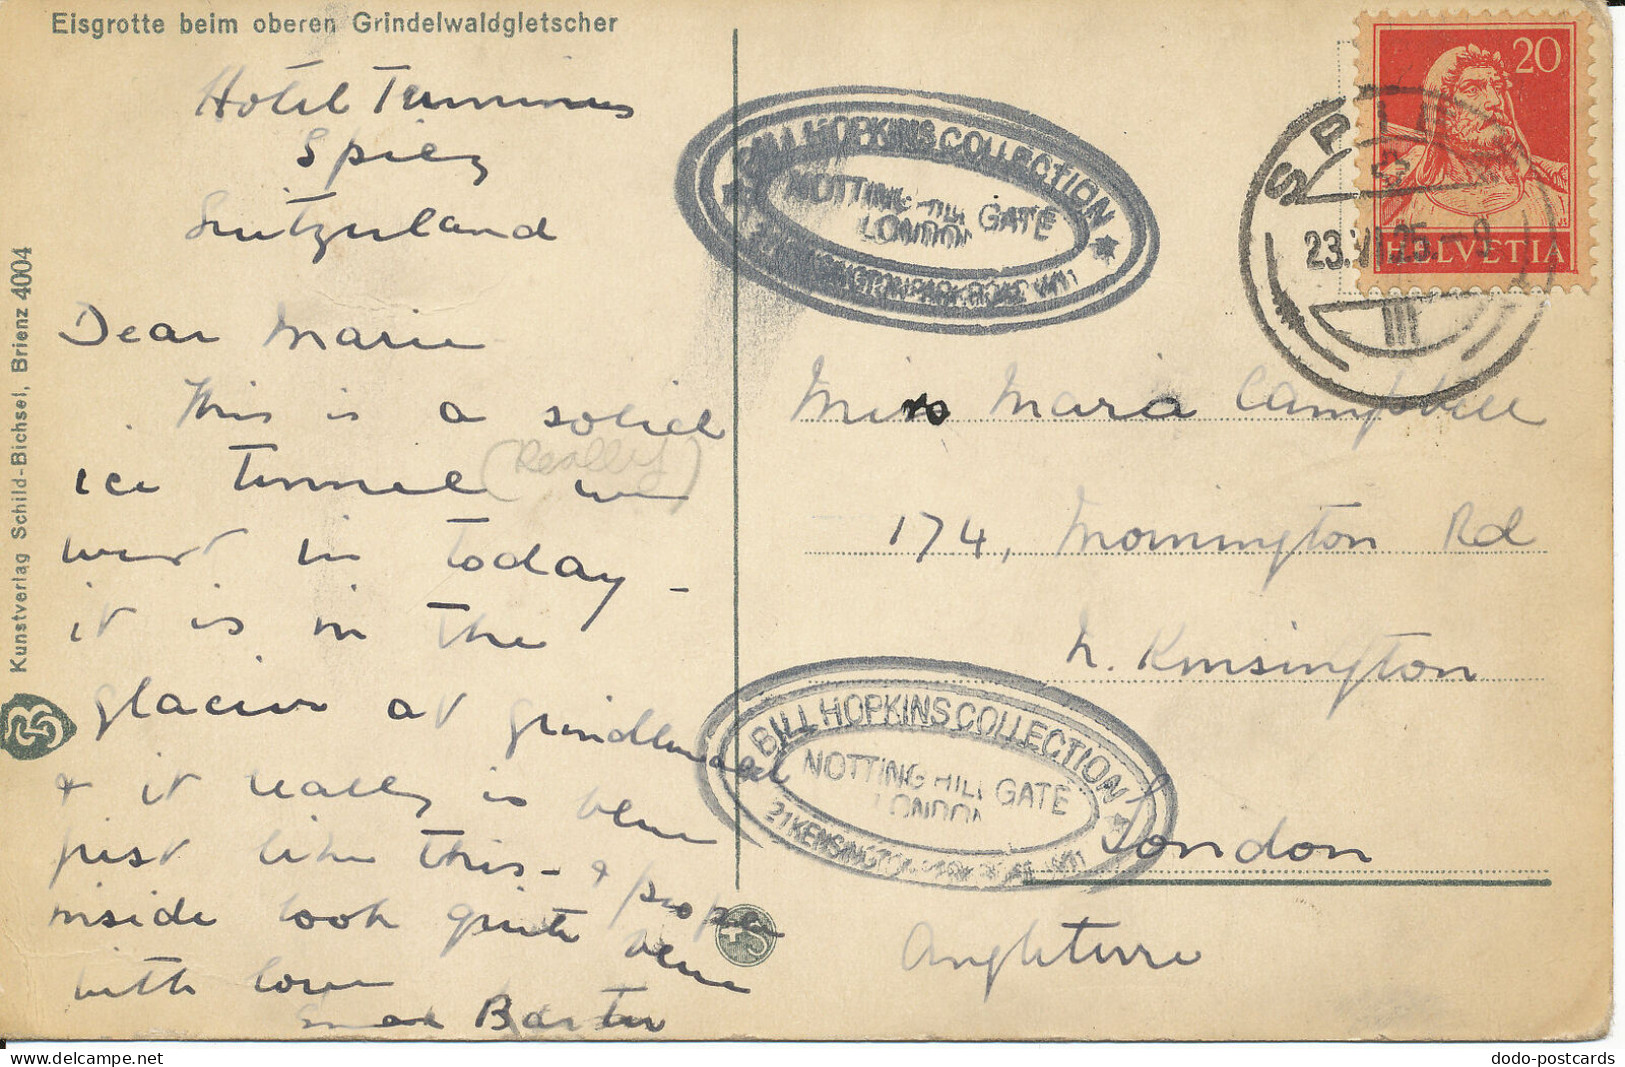 Eisgrotte beim oberen Grindelwaldgletscher
Hotel Terminus
Spiez
Switzerland
Dear Marie
This is a solid
ice tunnel (Really) we
went in today -
it is in the
glacier at Grindlewald
& it really is blue
just like this - & people
inside look quite blue
with love
Barter
Kunstverlag Schild-Bichsel, Brienz 4004
BILL HOPKINS COLLECTION
NOTTING HILL GATE
LONDON
21 KENSINGTON PARK ROAD W11
20
HELVETIA
SPIEZ
23.VI.25.-9
III
Miss Maria Campbell
174, Mornington Rd
N. Kensington
London
Angleterre
BILL HOPKINS COLLECTION
NOTTING HILL GATE
LONDON
21 KENSINGTON PARK ROAD W11
dodo-postcards